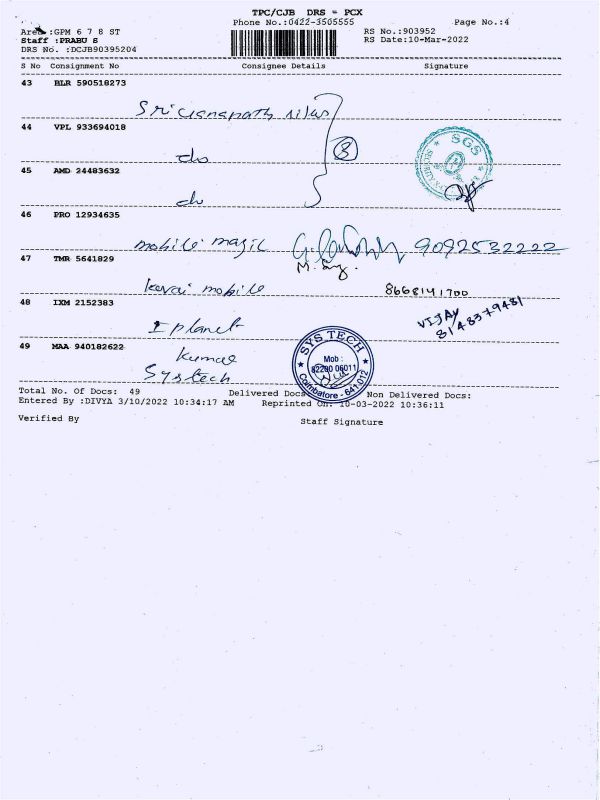 TPC/CJB DRS - PCX
Phone No.:0422-3505555 Page No.:4
Area :GPM 6 7 8 ST RS No.:903952
Staff :PRABU S RS Date:10-Mar-2022
DRS No. :DCJB90395204
S No Consignment No Consignee Details Signature
43 BLR 590518273
44 VPL 933694018
do
8
SGS
45 AMD 24483632
do
46 PRO 12934635
mobile magic 9092532222
47 TMR 5641829
kovai mobile 8668141700
48 IXM 2152383
Iplanet VIJAY
8148379481
49 MAA 940182622
kumar
Systech
SYS TECH
Mob :
82200 06011
Coimbatore - 641 012
Total No. Of Docs: 49 Delivered Docs Non Delivered Docs:
Entered By :DIVYA 3/10/2022 10:34:17 AM Reprinted On: 10-03-2022 10:36:11
Verified By Staff Signature